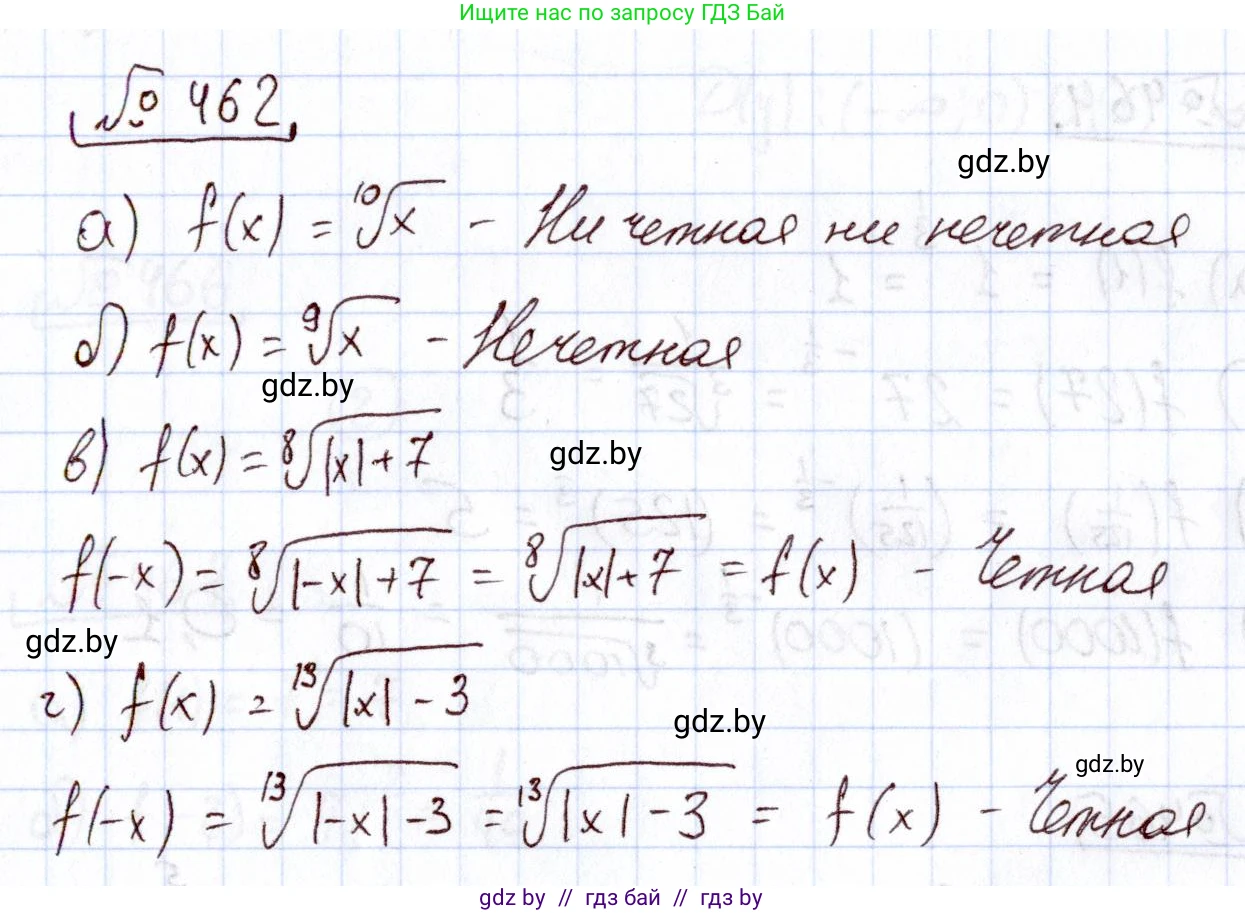 Ищите нас по запросу ГДЗ Бай
№ 462
gdz.by
а) f(x) = ¹⁰√x - Ни четная ни нечетная
б) f(x) = ⁹√x - Нечетная
gdz.by
в) f(x) = ⁸√|x| + 7
gdz.by
f(-x) = ⁸√|-x| + 7 = ⁸√|x| + 7 = f(x) - Четная
gdz.by
г) f(x) = ¹³√|x| - 3
gdz.by
gdz.by
f(-x) = ¹³√|-x| - 3 = ¹³√|x| - 3 = f(x) - Четная
gdz.by // гдз бай // gdz.by